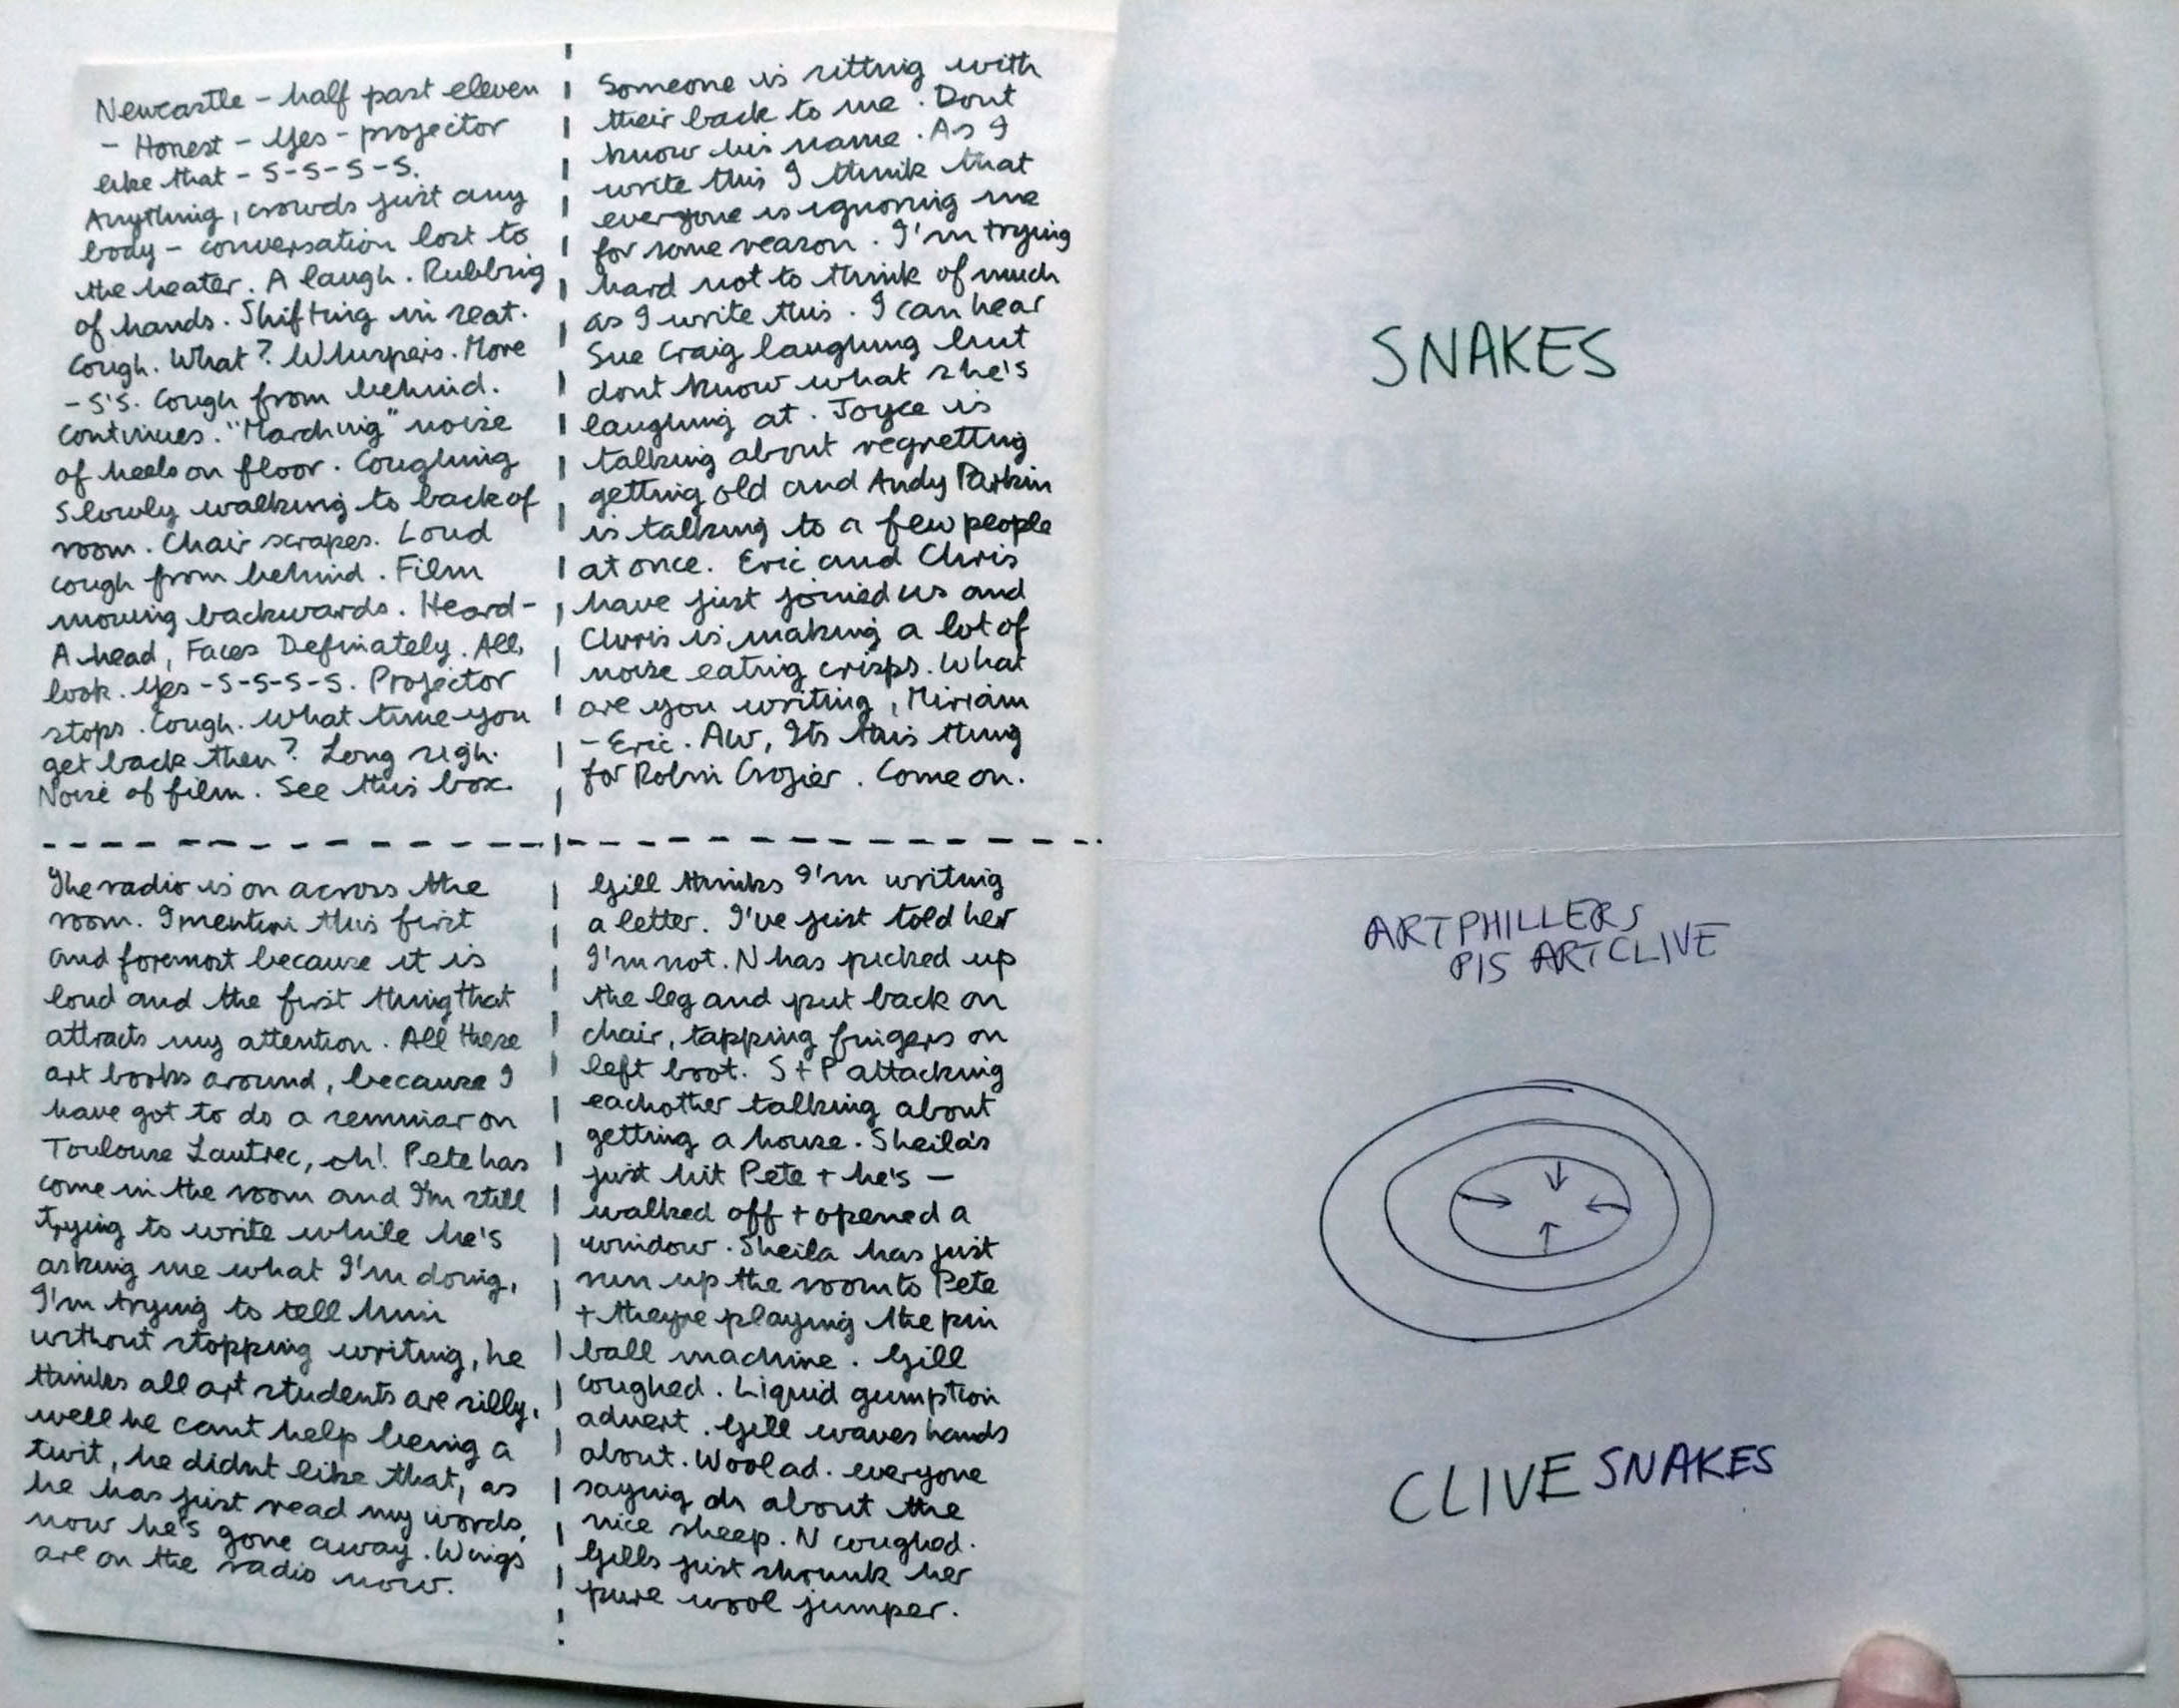 Newcastle - half past eleven
- Honest - Yes - projector
like that - S-S-S-S-S.
Anything, crowds just any
body - conversation lost to
the heater. A laugh. Rubbing
of hands. Shifting in seat.
Cough. What? Whispers. More
- S'S. Cough from behind.
Continues. "Marching" noise
of heels on floor. Coughing
Slowly walking to back of
room. Chair scrapes. Loud
cough from behind. Film
moving backwards. Heard-
A head, Faces Definately. All
look. Yes - S-S-S-S. Projector
stops. Cough. What time you
get back then? Long sigh.
Noise of film. See this box.
Someone is sitting with
their back to me. Dont
know his name. As I
write this I think that
everyone is ignoring me
for some reason. I'm trying
hard not to think of much
as I write this. I can hear
Sue Craig laughing but
dont know what she's
laughing at. Joyce is
talking about regretting
getting old and Andy Parkin
is talking to a few people
at once. Eric and Chris
have just joined us and
Chris is making a lot of
noise eating crisps. What
are you writing, Miriam
- Eric. AW, Its this thing
for Robin Crozier. Come on.
The radio is on across the
room. I mention this first
and foremost because it is
loud and the first thing that
attracts my attention. All these
art books around, because I
have got to do a seminar on
Toulouse Lautrec, oh! Pete has
come in the room and I'm still
trying to write while he's
asking me what I'm doing,
I'm trying to tell him
without stopping writing, he
thinks all art students are silly,
well he cant help being a
twit, he didnt like that, as
he has just read my words,
now he's gone away. Wings
are on the radio now.
Gill thinks I'm writing
a letter. I've just told her
I'm not. N has picked up
the leg and put back on
chair, tapping fingers on
left boot. S + P attacking
eachother talking about
getting a house. Sheila's
just hit Pete + he's —
walked off + opened a
window. Sheila has just
run up the room to Pete
+ they're playing the pin
ball machine. Gill
coughed. Liquid gumption
advert. Gill waves hands
about. Wool ad. everyone
saying oh about the
nice sheep. N coughed.
Gills just shrunk her
pure wool jumper.
SNAKES
ARTPHILLERS
PIS ARTCLIVE
CLIVE SNAKES